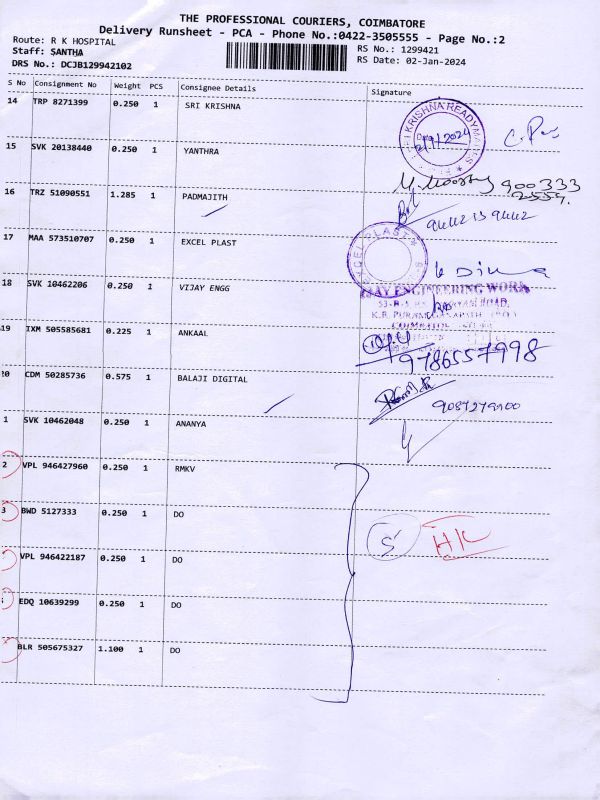 THE PROFESSIONAL COURIERS, COIMBATORE
Delivery Runsheet - PCA - Phone No.:0422-3505555 - Page No.:2
Route: R K HOSPITAL
RS No.: 1299421
Staff: SANTHA
RS Date: 02-Jan-2024
DRS No.: DCJB129942102
S No Consignment No Weight PCS Consignee Details Signature
14 TRP 8271399 0.250 1 SRI KRISHNA
KRISHNA READYMA
15 SVK 20138440 0.250 1 YANTHRA
900333
16 TRZ 51090551 1.285 1 PADMAJITH
94412 13 9442
17 MAA 573510707 0.250 1 EXCEL PLAST
18 SVK 10462206 0.250 1 VIJAY ENGG
ENGINEERING WORK
19 IXM 505585681 0.225 1 ANKAAL
9786557998
20 CDM 50285736 0.575 1 BALAJI DIGITAL
1 SVK 10462048 0.250 1 ANANYA
2 VPL 946427960 0.250 1 RMKV
3 BWD 5127333 0.250 1 DO
S HK
VPL 946422187 0.250 1 DO
EDQ 10639299 0.250 1 DO
BLR 505675327 1.100 1 DO